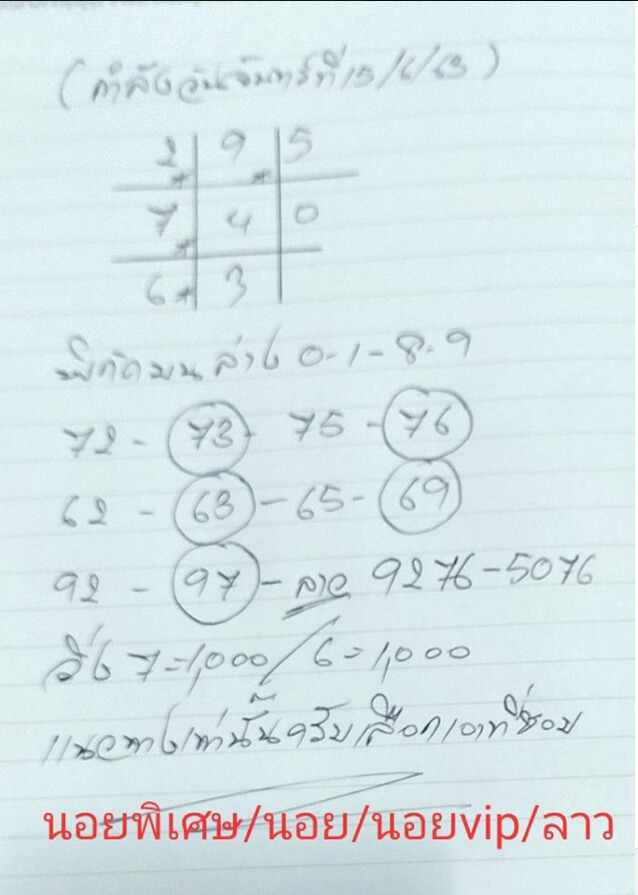 (กำลังวันจันทร์ที่15/6/63)
2 9 5
7 4 0
6 3
พิกัดบน ล่าง 0-1-8-9
72 - 73 - 75 - 76
62 - 63 - 65 - 69
92 - 97 - ลาว 9276-5076
วิ่ง 7=1,000/6=1,000
แนวทางเท่านั้นครับเลือกเอาที่ชอบ
นอยพิเศษ/นอย/นอยvip/ลาว